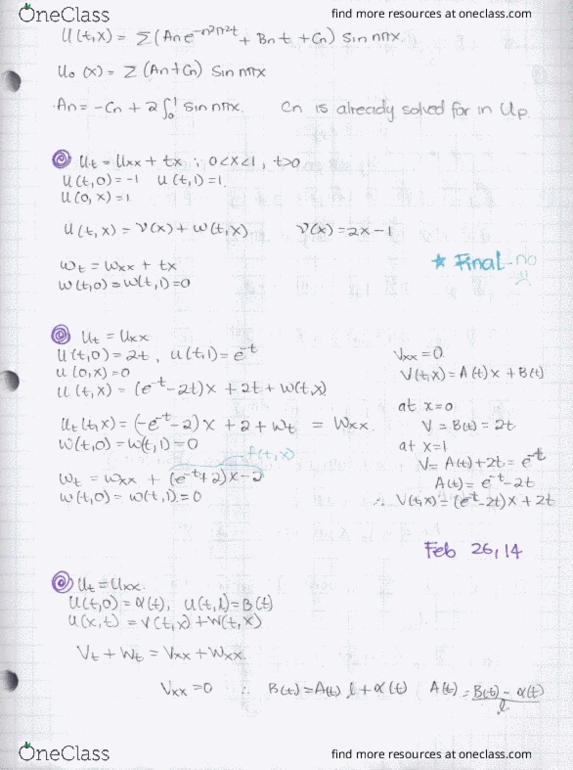 OneClass
find more resources at oneclass.com
U(t,x) = Σ(An e^-n²π²t + Bn t + Cn) sin nπx
U₀(x) = Σ(An+Cn) sin nπx
An = -Cn + 2∫₀¹ sin nπx. Cn is already solved for in Up.
Ut = Uxx + tx ; 0<x<1, t>0
U(t,0) = -1 U(t,1) = 1.
U(0,x) = 1
U(t,x) = V(x) + W(t,x) V(x) = 2x - 1
Wt = Wxx + tx
W(t,0) = W(t,1) = 0
★ Final - no
Ut = Uxx
U(t,0) = 2t, U(t,1) = e^-t
U(0,x) = 0
U(t,x) = (e^-t - 2t)x + 2t + W(t,x)
Ut(t,x) = (-e^-t - 2)x + 2 + Wt = Wxx.
W(t,0) = W(t,1) = 0
f(t,x)
Wt = Wxx + (e^-t + 2)x - 2
W(t,0) = W(t,1) = 0
Vxx = 0.
V(t,x) = A(t)x + B(t)
at x=0
V = B(t) = 2t
at x=1
V = A(t) + 2t = e^-t
A(t) = e^-t - 2t
∴ V(t,x) = (e^-t - 2t)x + 2t
Feb 26, 14
Ut = Uxx.
U(t,0) = α(t), U(t,l) = B(t)
U(x,t) = V(t,x) + W(t,x)
Vt + Wt = Vxx + Wxx.
Vxx = 0 ∴ B(t) = A(t) l + α(t) A(t) = B(t) - α(t) / l
OneClass
find more resources at oneclass.com